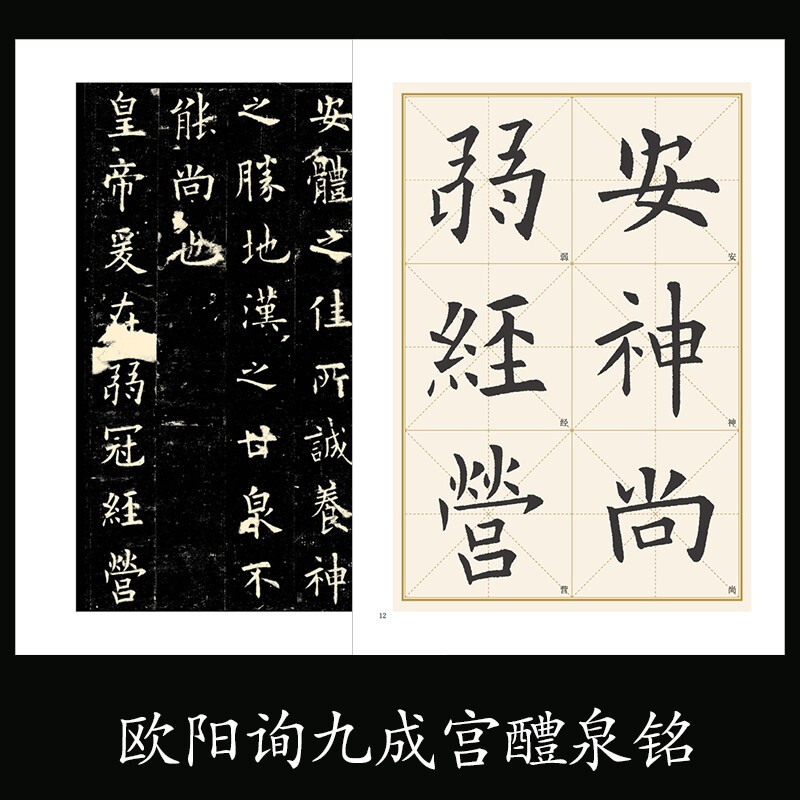 安體之佳所誠養神
之勝地漢之甘泉不
能尚也
皇帝爰在弱冠經營
安
安
神
神
尚
尚
弱
弱
經
经
營
营
12
欧阳询九成宫醴泉铭